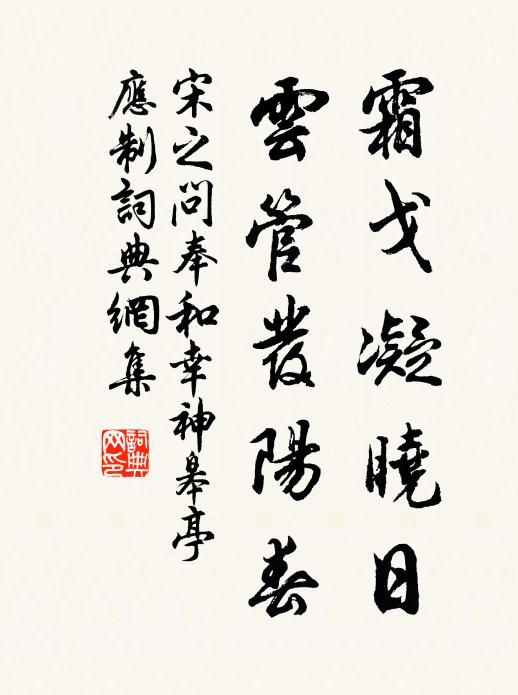 霜戈凝曉日
雲管發陽春
宋之問奉和幸神皋亭
應制詞典網集
詞典
网印